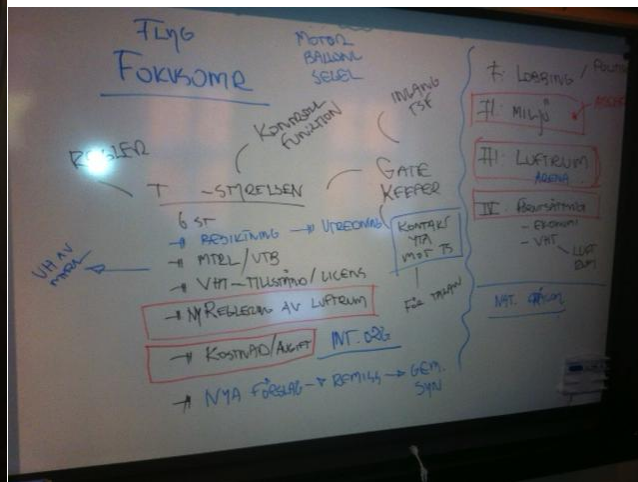 FLYG
FOKUSOMR
MOTOR
BALLONG
SEGEL
REGLER
KONTROLL
FUNKTION
INGÅNG
TSF
T -STYRELSEN
GATE
KEEPER
6 ST
→ BESIKTNING → UTREDNING
→ MTRL/UTB
→ VHT-TILLSTÅND/LICENS
→ NY REGLERING AV LUFTRUM
→ KOSTNAD/AVGIFT
INT. ORG
→ NYA FÖRSLAG → REMISS → GEM.
SYN
UH AV
MTRL
KONTAKT
YTA
MOT TS
FÖR
I: LOBBING /
II: MILJÖ
III: LUFTRUM
ARENA
IV: FÖRUTSÄTTNING
- EKONOMI
- VHT
LUFT
RUM
NAT.